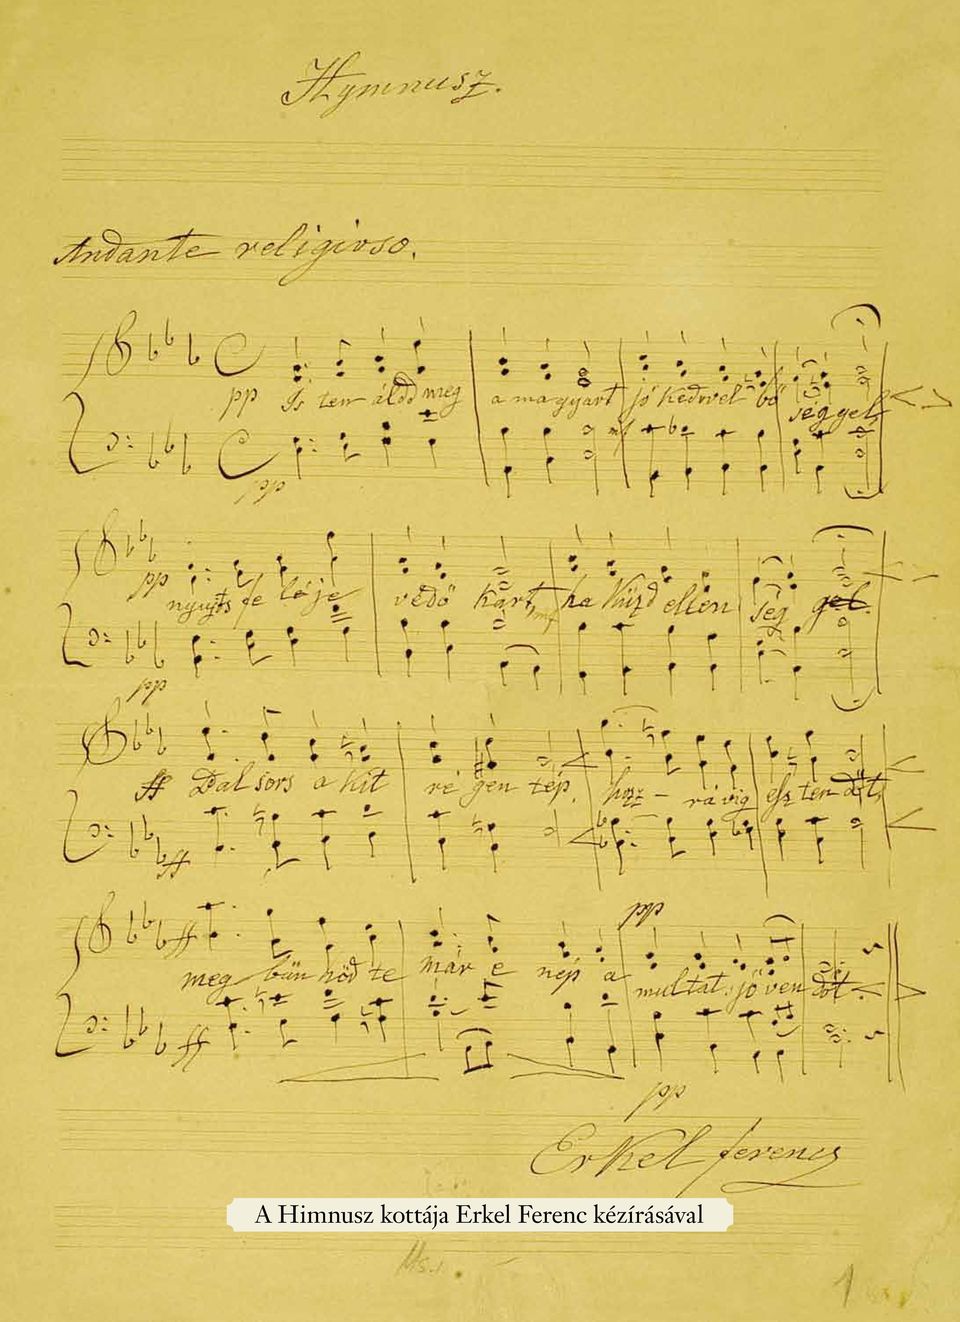 Hymnusz.
Andante religioso.
pp Is ten áldd meg a magyart jó kedvvel bő séggel
mf
pp
pp nyújts fe léje védő kart, ha küzd ellen ség gel.
mf
pp
ff Bal sors a kit ré gen tép, hozz - rá víg esz ten dőt,
ff
pp
ff meg bűn hőd te már e nép a multat jö ven dőt.
ff
pp
Erkel ferencz
A Himnusz kottája Erkel Ferenc kézírásával
Ms.
1